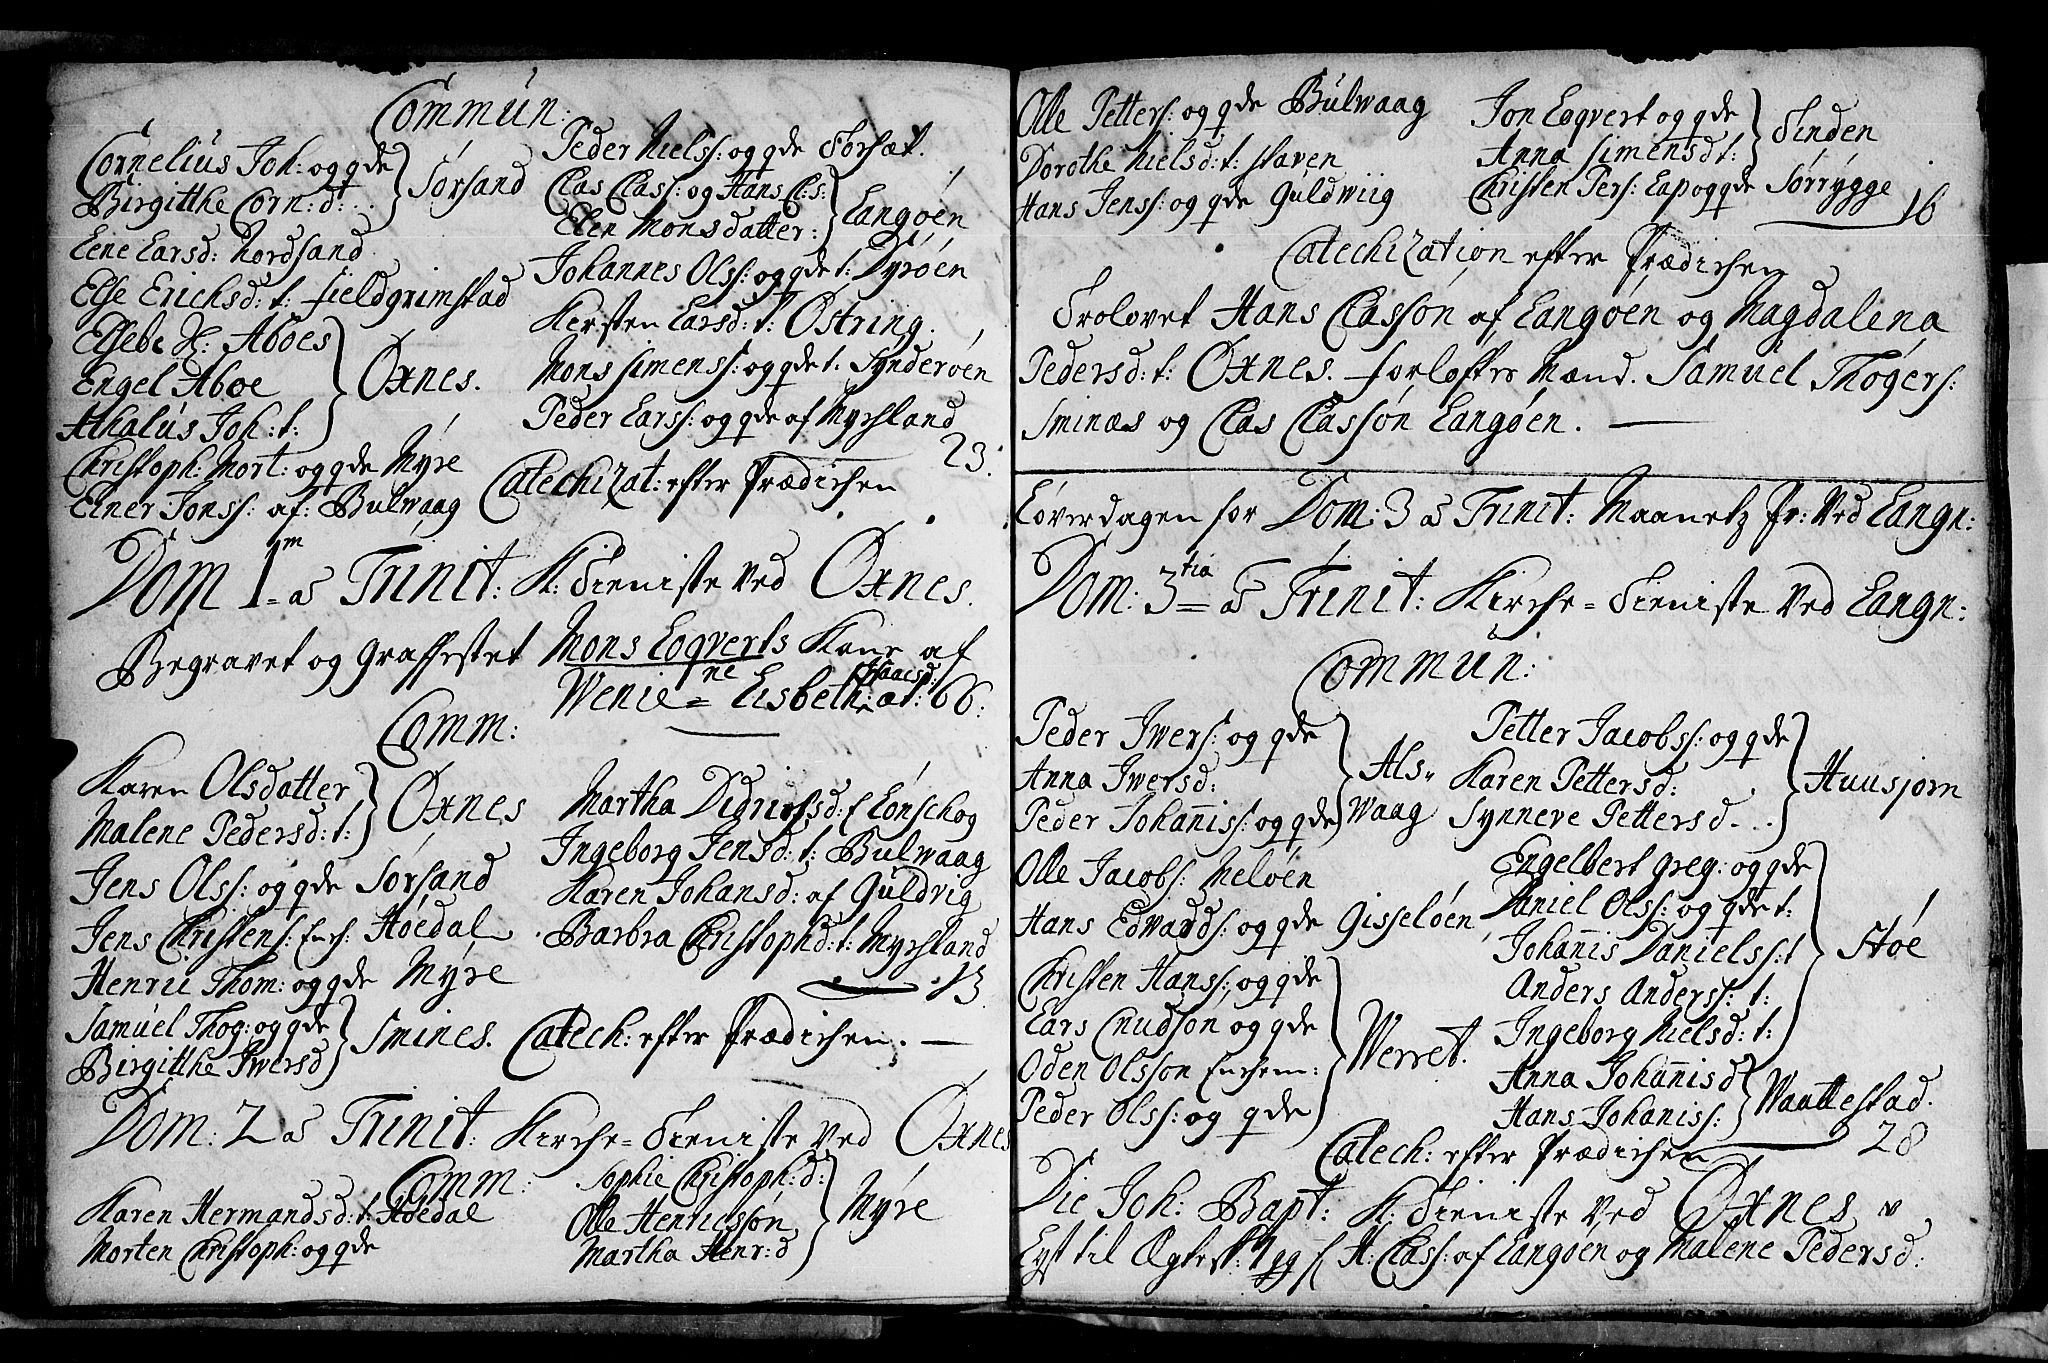 Commun:
Cornelius Joh: og qde
Birgitthe Corn: d: } Sørsand
Lene Larsd: Nordsand
Else Erichsd: t: Fieldgrimstad
Elsebe H: Aboes
Engel Aboe
Athalus Joh: t: } Oxnes.
Christoph: Mort: og qde Myre
Einer Jonss: af: Bulwaag
Peder Nielss: og qde Forsæt.
Clas Class: og Hans C: s:
Elen Monsdatter: } Langøen
Johannes Olss: og qde t: Dyrøen
Kirsten Larsd: t: Østring.
Mons Simenss: og qde t: Synderøen
Peder Larss: og qde af Myrhland
23.
Catechizat: efter Prædichen
Dom 1m a Trinit: K: Tieniste ved Oxnes.
Begravet og Graffestet Mons Eqverts Kone af
Wenie= Lisbeth Isaacsd: æt: 66.
Comm:
Karen Olsdatter
Malene Pedersd: t: } Oxnes
Jens Olss: og qde Sørsand
Jens Christens: Ench: Høedal
Henric Thom: og qde Myre
Samuel Thog: og qde
Birgitthe Iwersd } Smines.
Martha Didrichsd: f Lonschog
Ingeborg Jensd: t: Bulwaag
Karen Johansd: af Guldvig
Barbra Christophd: t: Myrhland
13
Catech: efter Prædichen.
Dom: 2 a Trinit: Kirche=Tieniste ved Oxnes
Comm:
Karen Hermandsd: t: Høedal
Morten Christoph: og qde
Sophie Christoph: d:
Olle Henricsson
Martha Henr: d } Myre
Olle Petters: og qde Bulwaag
Dorothe Nielsd: t: Staven
Hans Jenss: og qde Guldwiig
Jon Eqvert og qde
Anna Simensd t: } Tinden
Christen Pers: Lap og qde Sørrygge
16
Catechization efter Prædichen
Trolovet Hans Classøn af Langøen og Magdalena
Pedersd: t: Oxnes. Forløftes Mænd. Samuel Thøgers:
Sminæs og Clas Classøn Langøen.
Løverdagen for Dom: 3 a Trinit: Maanetz Pr: ved Langn:
Dom: 3tia a Trinit: Kirche=Tieniste ved Langn:
Commun:
Peder Iwers: og qde
Anna Iwersd:
Peder Johanis: og qde } Als-waag
Olle Jacobs: Meløen
Hans Edwards: og qde Gisseløen
Christen Hanss: og qde
Lars Cnudson og qde
Oden Olsson Enchem:
Peder Olss: og qde } Werret.
Petter Jacobss: og qde
Karen Pettersd:
Synneve Pettersd. } Huusjorn
Engelbert Greg: og qde
Daniel Olss: og qde t:
Johanis Danielss: t
Anders Anderss: t:
Ingeborg Nielsd: t: } Støe
Anna Johanisd
Hans Johaniss: } Waattestad.
28
Catech: efter Prædichen
Die Joh: Bapt: K: Tieniste ved Oxnes
Lyst til Ægtesk: H: Class: af Langøen og Malene Pedersd: